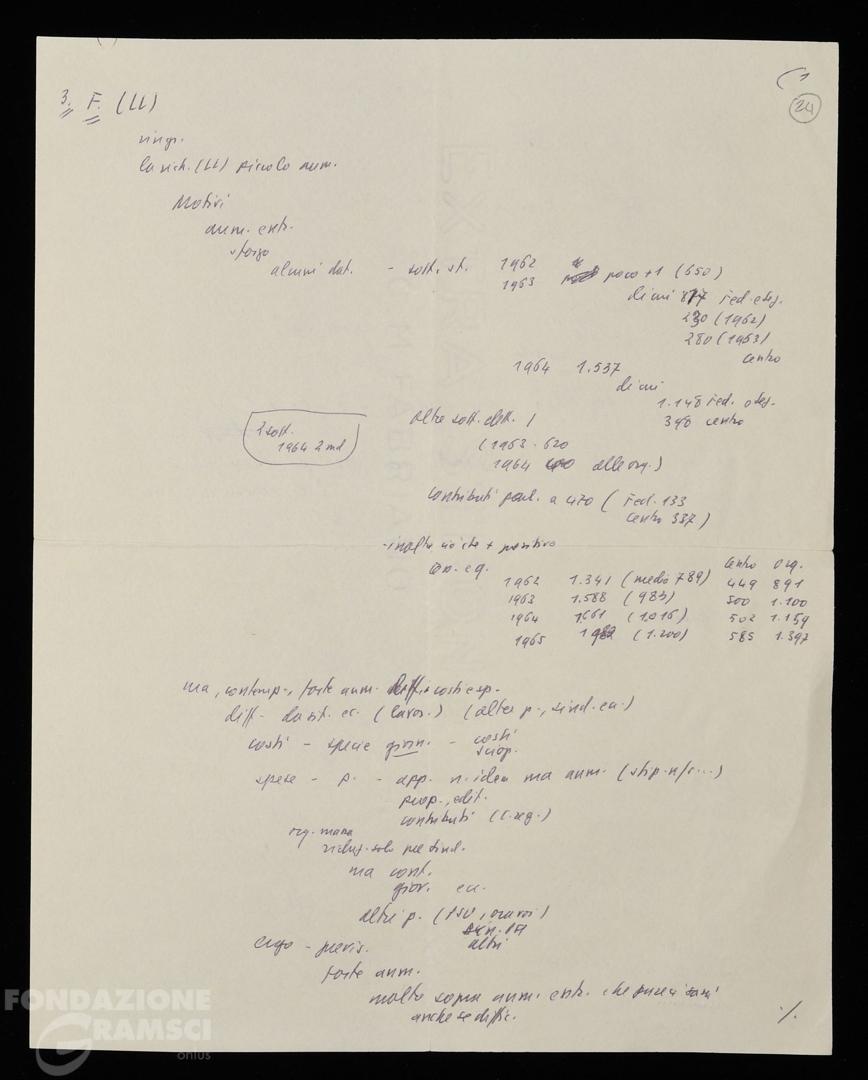 24
3. F. (LL)
ringr.
la rich. (LL) piccolo num.
Motivi
aum. entr.
sforzo
alcuni dat. - sott. st. 1962
1963 poco + 1 (650)
di cui fed. e
230 (1962)
280 (1963)
centro
1964 1.537
di cui
1.148 fed.
390 centro
2 sott.
1964 2 md
altre sott.
(1963 - 620
1964 alle org.)
contributi parl. a 470 (fed. 133
centro 337)
- inoltre + positivo
centro org.
1962 1.341 (media 789) 449 891
1963 1.588 (983) 500 1.100
1964 1.661 (1.016) 502 1.159
1965 (1.200) 585 1.397
ma, contemp., forte aum. costi e sp.
diff. da sit. ec. (lavor.) (altre p., sind. ecc.)
costi - specie giorn. - costi
sciop.
spese - p. - app. n. idem ma aum. (stip. n/r...)
prop., edit.
contributi (C. reg.)
org. massa
riduz. solo per sind.
ma cont.
giov. ecc.
altri p. (PSU,
altri
ergo - previs.
forte aum.
molto sopra aum. entr. che pure ci sarà
anche se diffic.
./.
FONDAZIONE
GRAMSCI
onlus